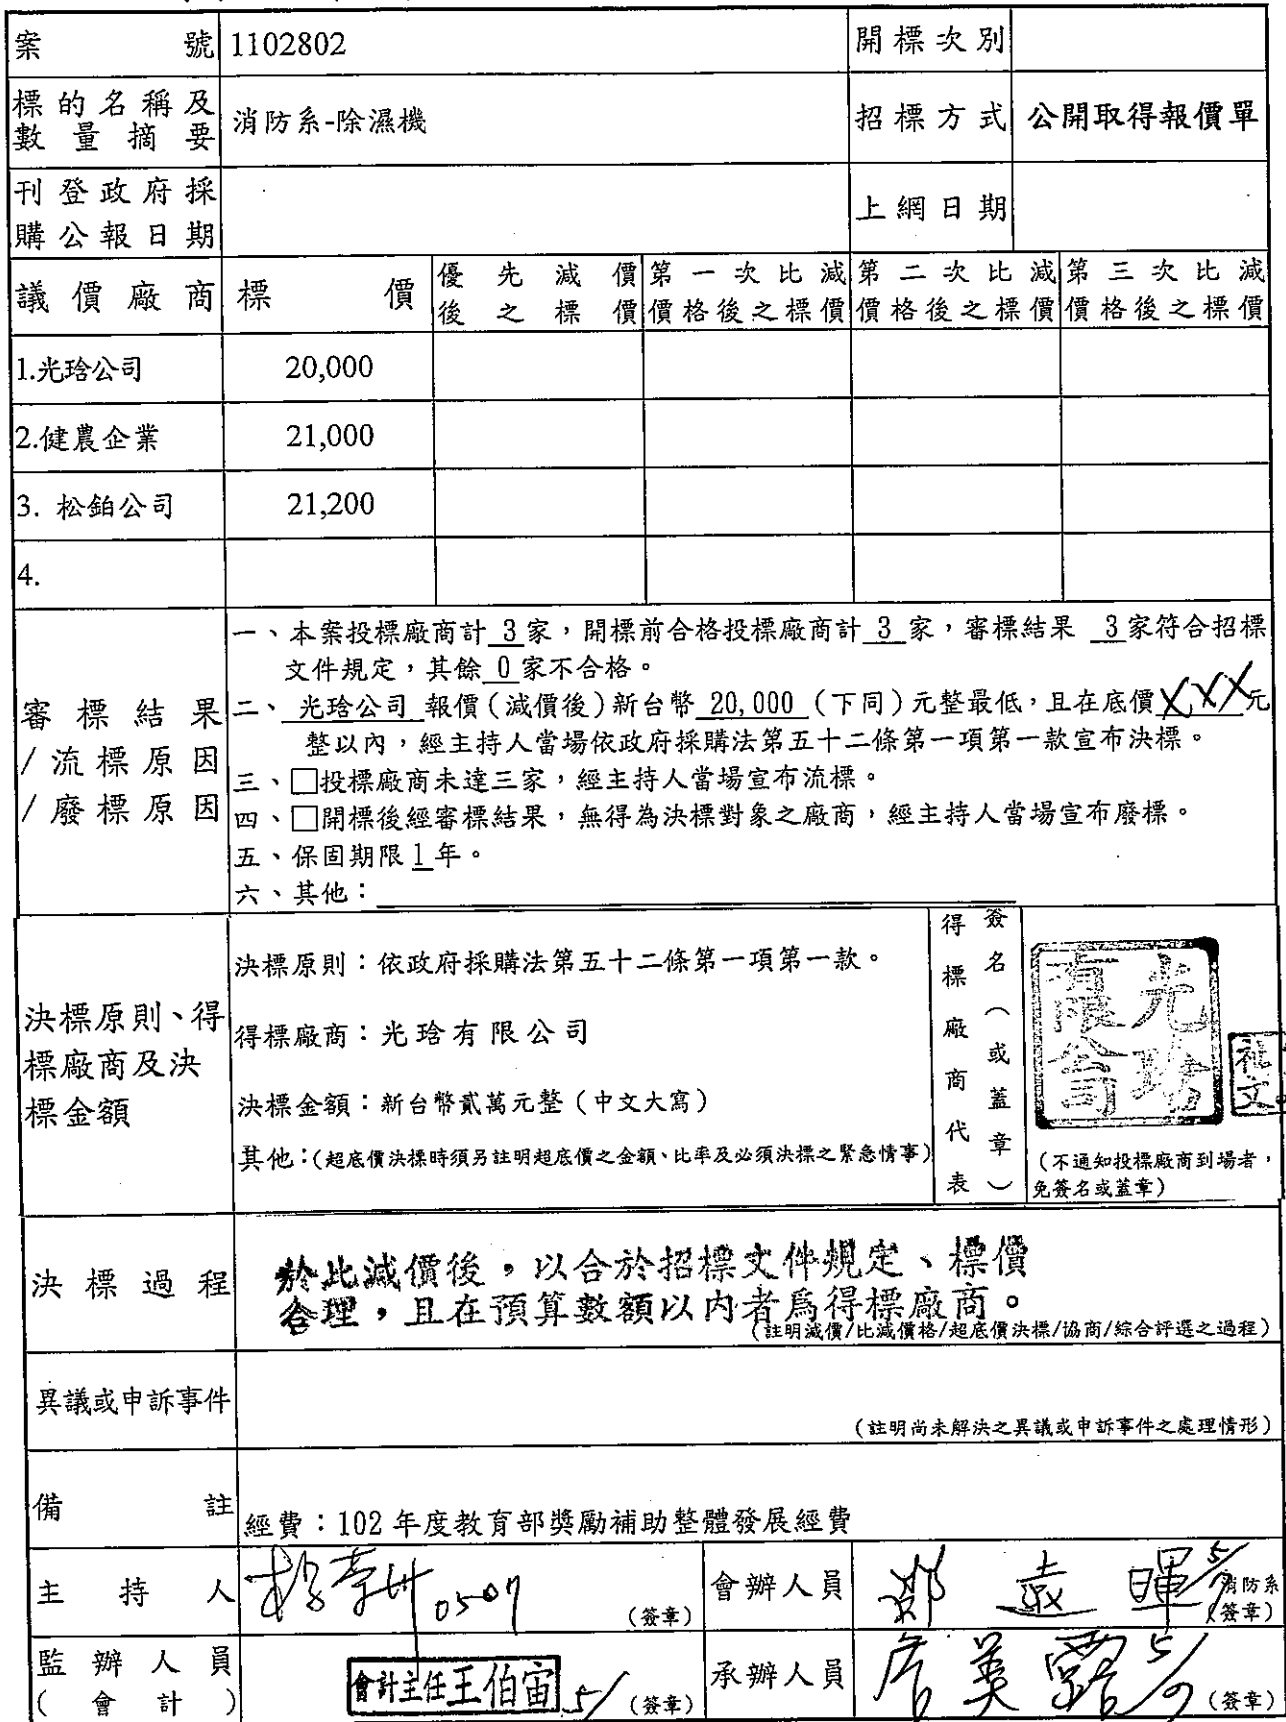 案號 1102802 開標次別
標的名稱及數量摘要 消防系-除濕機 招標方式 公開取得報價單
刊登政府採購公報日期 上網日期
議價廠商 標價 優先減價後之標價 第一次比減價格後之標價 第二次比減價格後之標價 第三次比減價格後之標價
1.光琀公司 20,000
2.健農企業 21,000
3. 松鉑公司 21,200
4.
審標結果/流標原因/廢標原因
一、本案投標廠商計 3 家，開標前合格投標廠商計 3 家，審標結果 3 家符合招標
文件規定，其餘 0 家不合格。
二、 光琀公司 報價(減價後)新台幣 20,000 (下同)元整最低，且在底價XXX元
整以內，經主持人當場依政府採購法第五十二條第一項第一款宣布決標。
三、□投標廠商未達三家，經主持人當場宣布流標。
四、□開標後經審標結果，無得為決標對象之廠商，經主持人當場宣布廢標。
五、保固期限 1 年。
六、其他：
決標原則、得標廠商及決標金額
決標原則：依政府採購法第五十二條第一項第一款。
得標廠商：光琀有限公司
決標金額：新台幣貳萬元整(中文大寫)
其他：(超底價決標時須另註明超底價之金額、比率及必須決標之緊急情事)
得標廠商代表
簽名(或蓋章)
光琀有限公司
(不通知投標廠商到場者，
免簽名或蓋章)
決標過程
於比減價後，以合於招標文件規定、標價
合理，且在預算數額以內者為得標廠商。
(註明減價/比減價格/超底價決標/協商/綜合評選之過程)
異議或申訴事件
(註明尚未解決之異議或申訴事件之處理情形)
備註 經費：102 年度教育部獎勵補助整體發展經費
主持人 0507 (簽章) 會辦人員 鄧遠暉 消防系 (簽章)
監辦人員(會計) 會計主任王伯宙 5/ (簽章) 承辦人員 詹美露 5/7 (簽章)